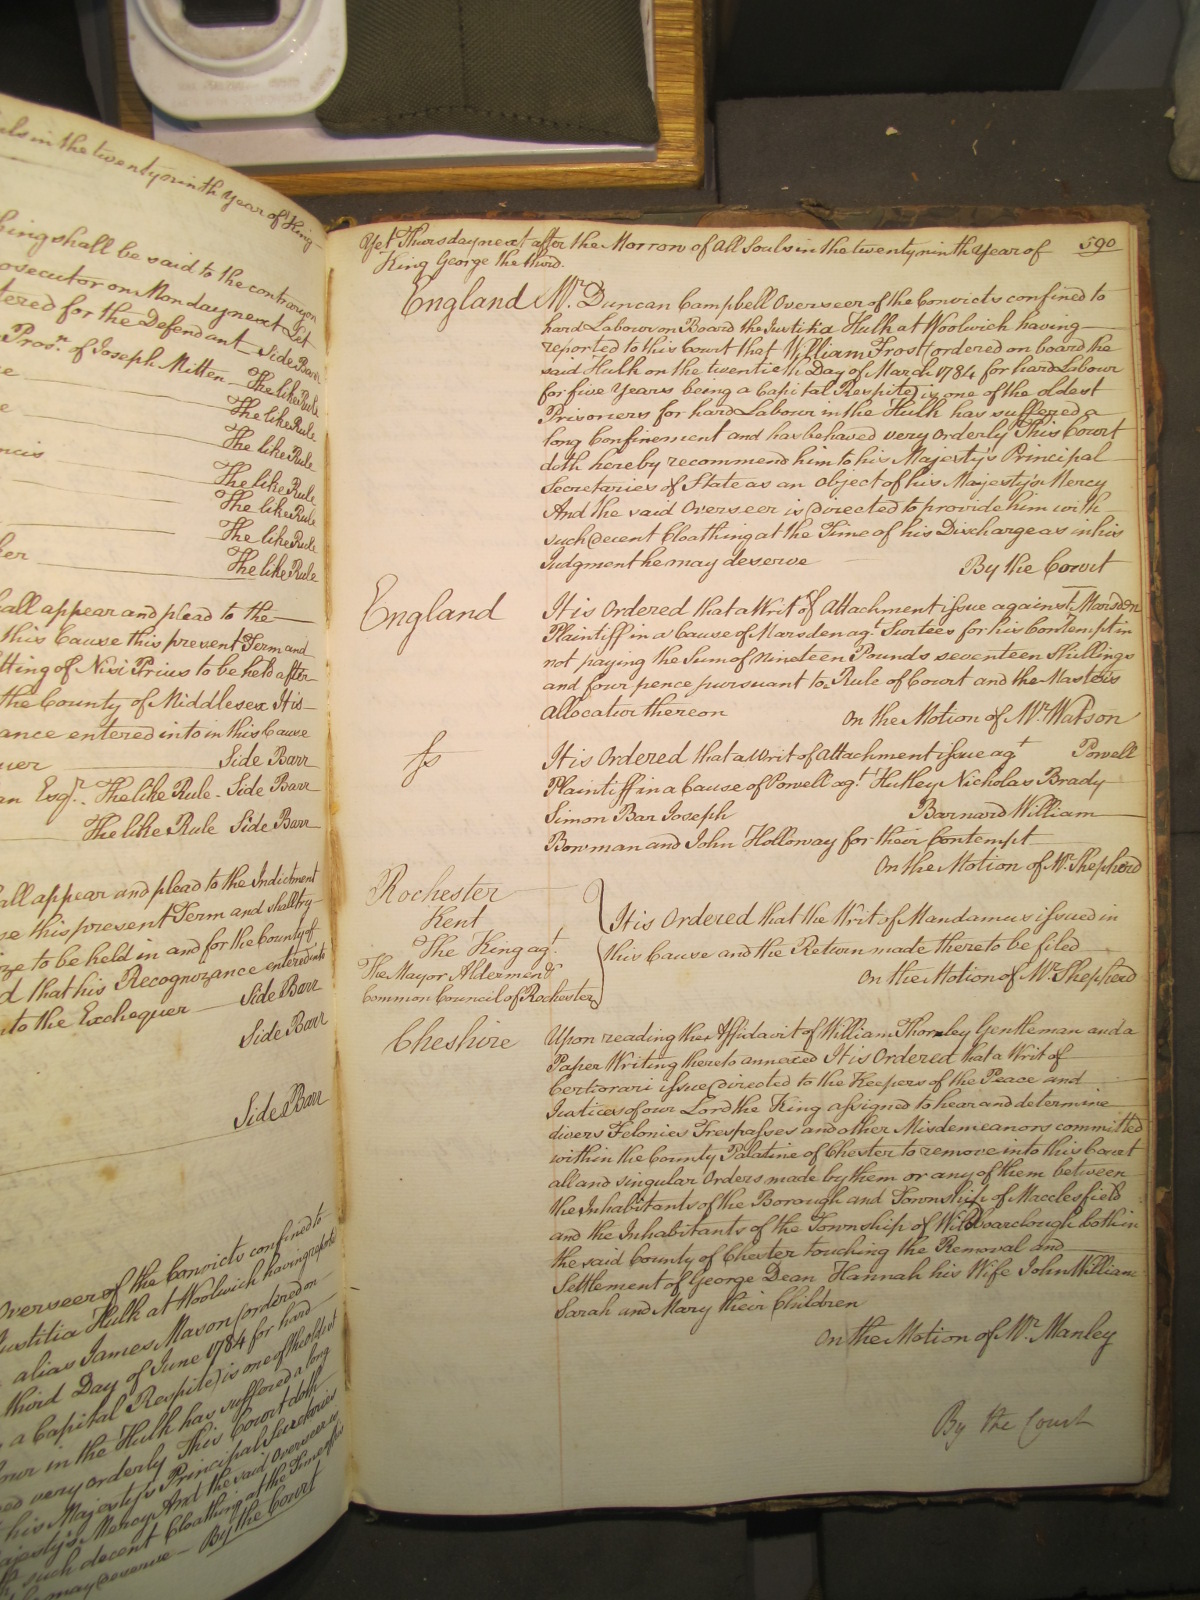 als in the twenty ninth Year of King
hing shall be said to the contrary on
osecutor on Monday next Let
tered for the Defendant Side Barr
Prosn. of Joseph Mitten The like Rule
The like Rule
The like Rule
ncis The like Rule
The like Rule
The like Rule
ker The like Rule
all appear and plead to the
this Cause this present Term and
tting of Nisi Prius to be held after
the County of Middlesex It is
ance entered into in this Cause
uer Side Barr
an Esqr. The like Rule Side Barr
The like Rule Side Barr
all appear and plead to the Indictment
se this present Term and shall try
ze to be held in and for the County of
d that his Recognozance entered into
to the Exchequer Side Barr
Side Barr
Side Barr
Overseer of the Convicts confined to
Justitia Hulk at Woolwich having reported
alias James Mason (ordered on
third Day of June 1784 for hard
a Capital Respite) is one of the oldest
in the Hulk has suffered a long
ed very orderly This Court doth
his Majesty's Principal Secretaries
ajesty's Mercy And the said Overseer is
such decent Cloathing at the Time of his
may deserve By the Court
Yet Thursday next after the Morrow of All Souls in the twenty ninth Year of 590
King George the third.
England Mr. Duncan Campbell Overseer of the Convicts confined to
hard Labour on Board the Justitia Hulk at Woolwich having
reported to this Court that William Frost (ordered on board the
said Hulk on the twentieth Day of March 1784 for hard Labour
for five Years being a Capital Respite) is one of the oldest
Prisoners for hard Labour in the Hulk has suffered a
long Confinement and has behaved very orderly This Court
doth hereby recommend him to his Majesty's Principal
Secretaries of State as an Object of his Majesty's Mercy
And the said Overseer is directed to provide him with
such decent Cloathing at the Time of his Discharge as in his
Judgment he may deserve By the Court
England It is Ordered that a Writ of Attachment issue against Marsden
Plaintiff in a Cause of Marsden agt. Surtees for his Contempt in
not paying the Sum of nineteen Pounds seventeen shillings
and four pence pursuant to Rule of Court and the Masters
Allocatur thereon On the Motion of Mr. Watson
fs It is Ordered that a Writ of Attachment issue agt Powell
Plaintiff in a Cause of Powell agt. Hutley Nicholas Brady
Simon Bar Joseph Barnard William
Bowman and John Holloway for their Contempt
On the Motion of Mr. Shepherd
Rochester
Kent
The King agt.
The Mayor Aldermen &
Common Council of Rochester
It is Ordered that the Writ of Mandamus issued in
this Cause and the Return made thereto be filed
On the Motion of Mr. Shepherd
Cheshire Upon reading the Affidavit of William Thornley Gentleman and a
Paper Writing thereto annexed It is Ordered that a Writ of
Certiorari issue directed to the Keepers of the Peace and
Justices of our Lord the King assigned to hear and determine
divers Felonies Trespasses and other Misdemeanors committed
within the County Palatine of Chester to remove into this Court
all and singular Orders made by them or any of them between
the Inhabitants of the Borough and Township of Macclesfield
and the Inhabitants of the Township of Wildboarclough both in
the said County of Chester touching the Removal and
Settlement of George Dean Hannah his Wife John William
Sarah and Mary their Children
On the Motion of Mr. Manley
By the Court